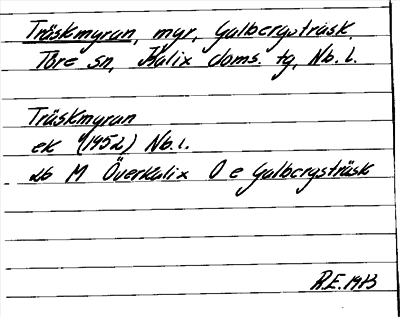 Träskmyran, myr, Galbergsträsk,
Töre sn, Kalix doms. tg, Nb. l.
Träskmyran
ek (1952) Nb. l.
26 M Överkalix O e Galbergsträsk
R.E. 1983